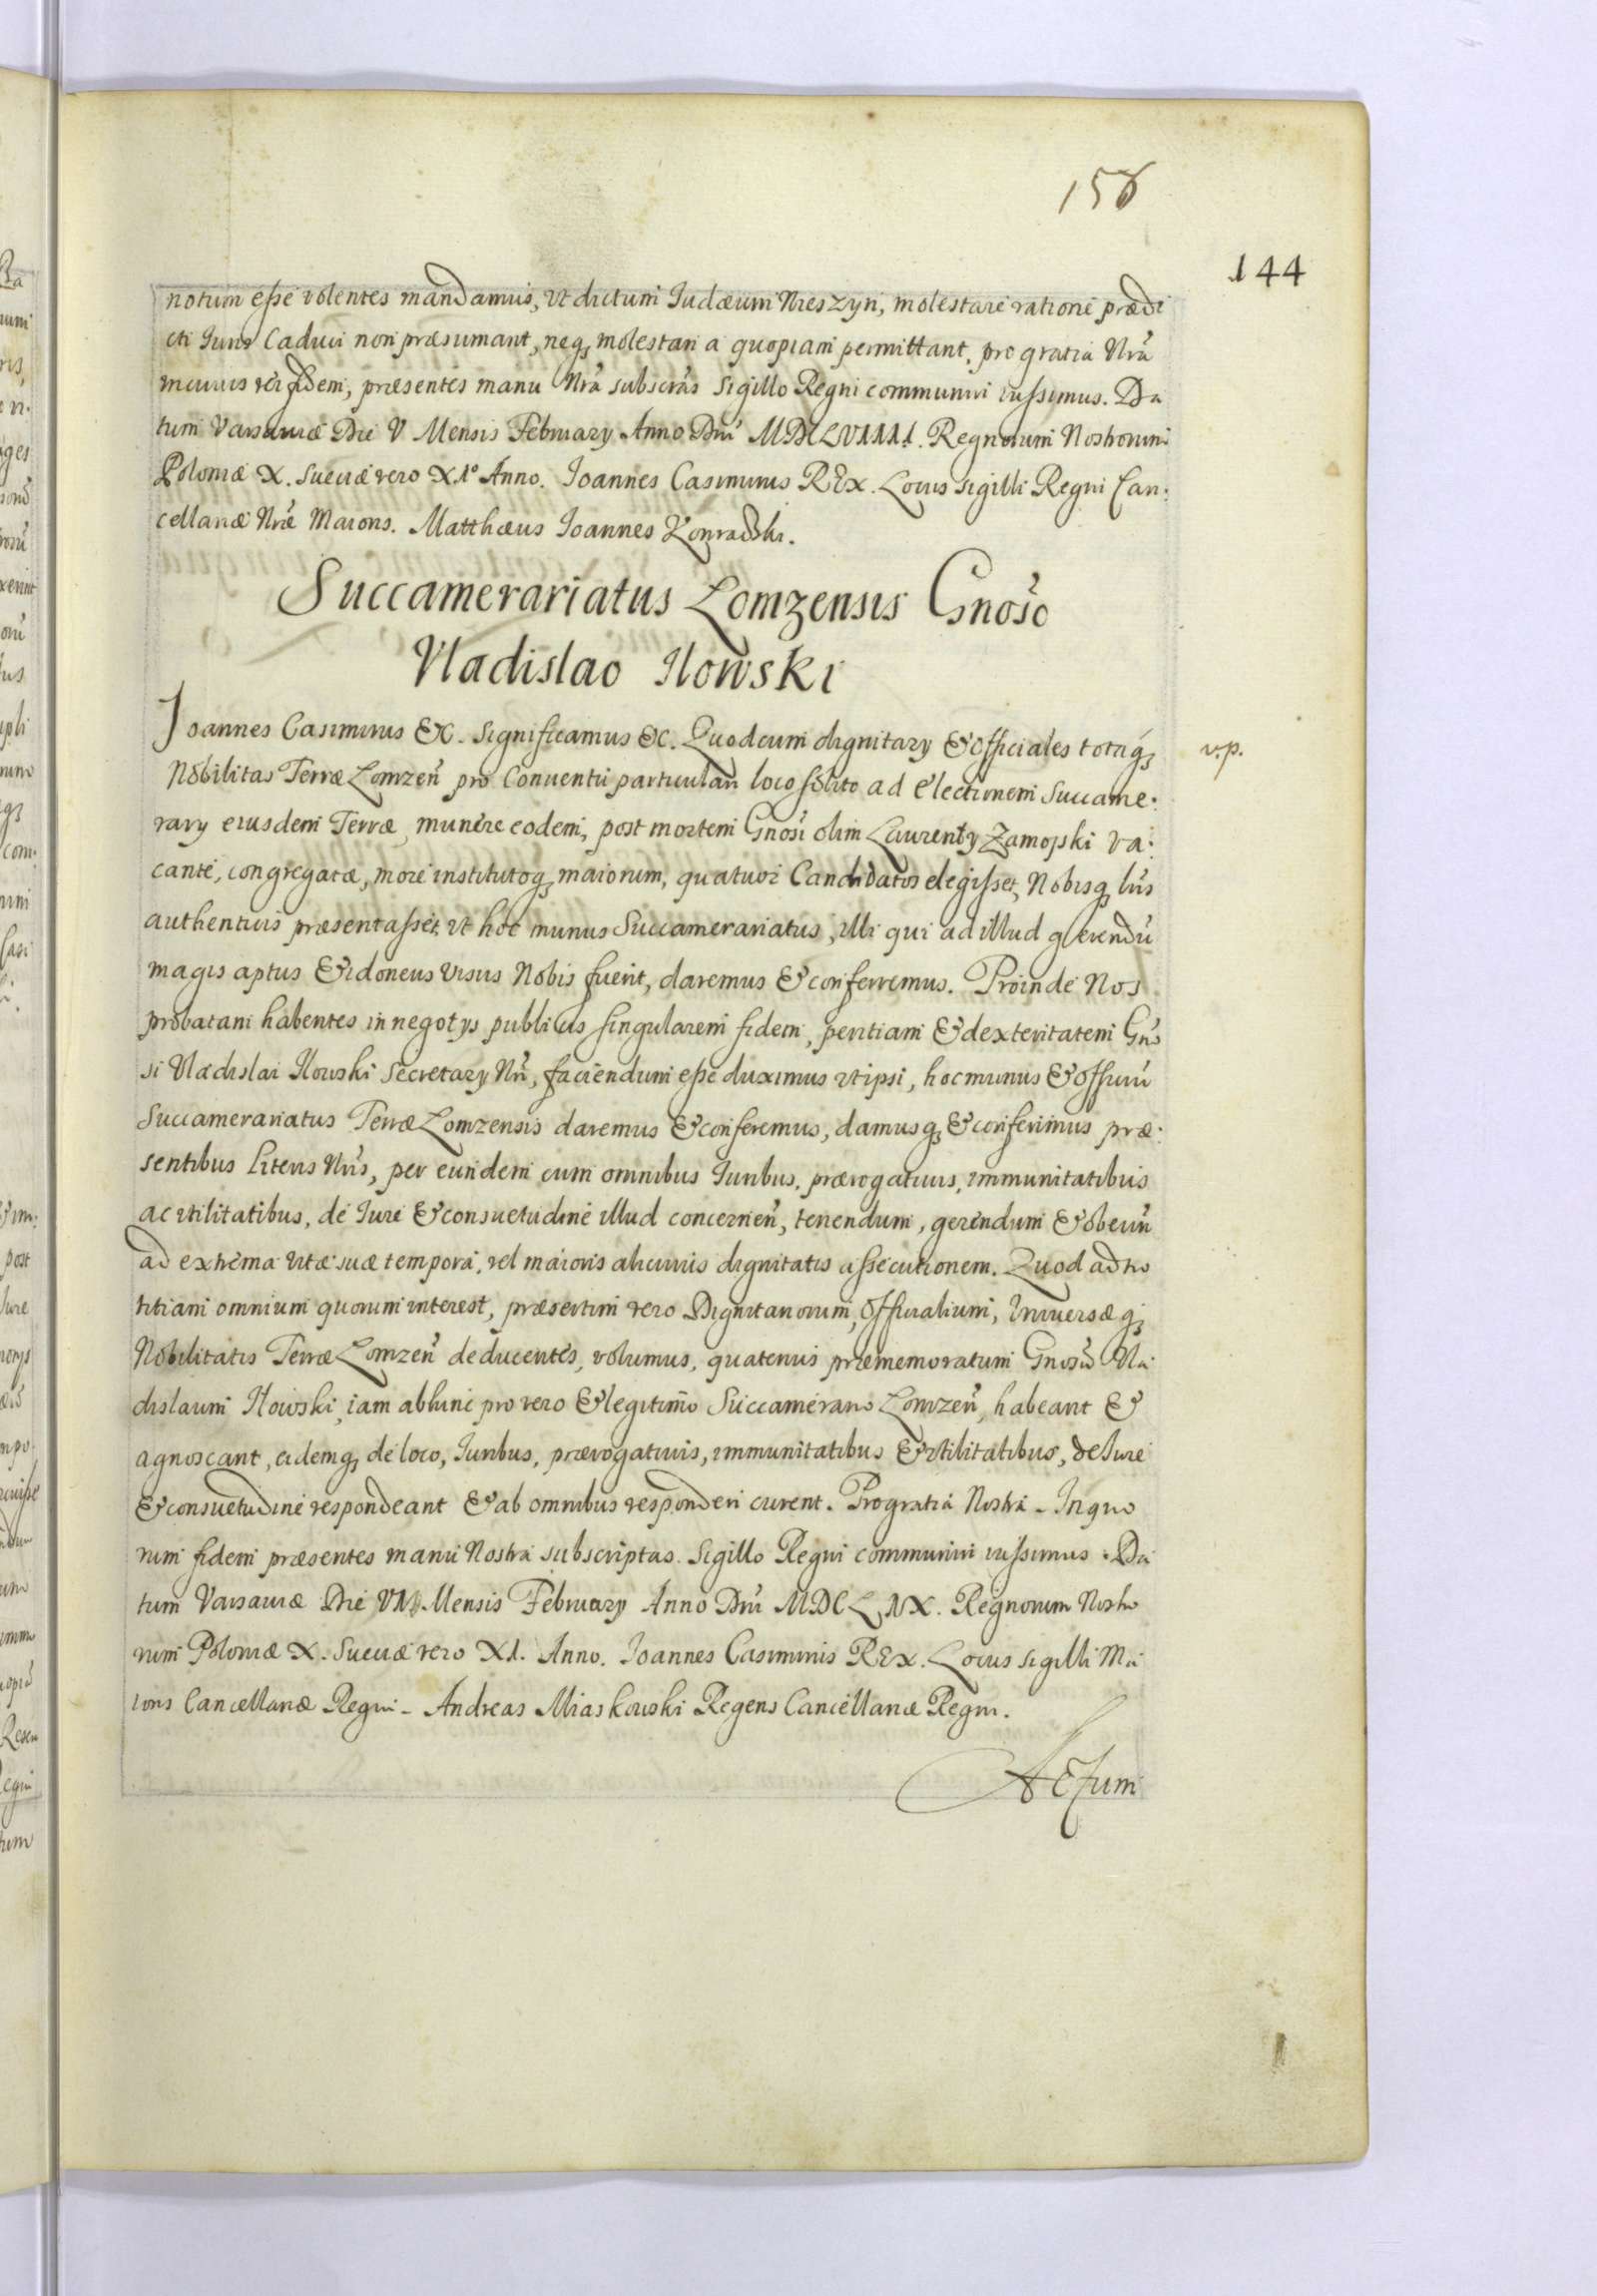 156
144
notum esse volentes mandamus, vt dictum Iudæum Nieszyn, molestare ratione prædi
cti Iuris Caduci non præsumant, neq3 molestari a quopiam permittant, pro gratia Nrã
incuius rei fidem, præsentes manu Nrã subscrãs Sigillo Regni communiri iussimus. Da
tum Varsauiæ Die V Mensis February Anno Dnĩ MDCLVIIII. Regnorum Nostrorum
Poloniæ X. Sueciæ vero XI° Anno. Ioannes Casimirus REX. Locus Sigilli Regni Can:
cellariæ Nræ Maioris. Matthæus Ioannes Konradzki.
Succamerariatus Lomzensis Gnoso
Vladislao Ilowski
Ioannes Casimirus &c. Significamus &c. Quod cum dignitary & Officiales totaq3
v.p.
Nobilitas Terræ Lomzeñ pro Conuentu particulari loco solito ad Electionem Succame:
rary eiusdem Terræ, munere eodem, post mortem Gnosi olim Laurenty Zamojski va:
cante, congregatæ, more institutoq3 maiorum, quatuor Candidatos elegisset, Nobisq3 lris
authenticis præsentasset, vt hoc munus Succamerariatus, illi qui ad illud gerendũ
magis aptus & idoneus visus Nobis fuerit, daremus & conferremus. Proinde Nos
probatam habentes in negotys publicis singularem fidem, peritiam & dexteritatem Gno
si Vladislai Ilowski Secretary Nri, faciendum esse duximus vt ipsi, hoc munus & Officiũ
Succamerariatus Terræ Lomzensis daremus & conferemus, damusq3 & conferimus præ:
sentibus Literis Nris, per eundem cum omnibus Iuribus, prærogatiuis, immunitatibus
ac vtilitatibus, de Iure & consuetudine illud concerneñ, tenendum, gerendum & obeuñ
ad extrema vitæ suæ tempora, vel maioris alicuius dignitatis assecutionem. Quod ad no
titiam omnium quorum interest, præsertim vero Dignitariorum, Officialium, Vniuersæq3
Nobilitatis Terræ Lomzeñ deducentes, volumus, quatenus præmemoratum Gnosũ Vla
dislaum Ilowski, iam abhinc pro vero & legitimo Succamerario Lomzeñ, habeant &
agnoscant, eidemq3 de loco, Iuribus, prærogatiuis, immunitatibus & vtilitatibus, de Iure
& consuetudine respondeant & ab omnibus responderi curent. Pro gratia Nostra. In quo
rum fidem præsentes manu Nostra subscriptas Sigillo Regni communiri iussimus. Da
tum Varsauiæ Die Mensis February Anno Dnĩ MDCLIX. Regnorum Nostro
rum Poloniæ X. Sueciæ vero XI. Anno. Ioannes Casimirus REX. Locus Sigilli Ma
ioris Cancellariæ Regni. Andreas Miaskowski Regens Cancellariæ Regni.
Actum